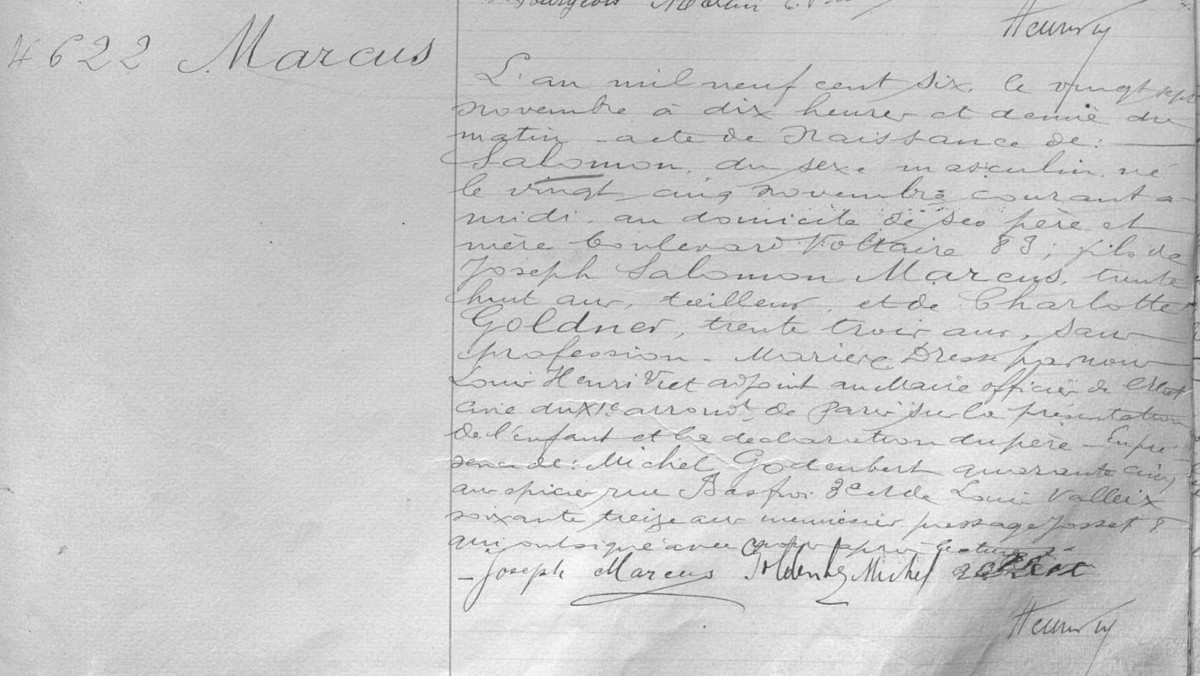 Bourgeois
4622 Marcus
L'an mil neuf cent six, le vingt sept
novembre à dix heures et demie du
matin – acte de Naissance de :
Salomon, du sexe masculin, né
le vingt cinq novembre courant à
midi, au domicile de ses père et
mère boulevard Voltaire 83 ; fils de
Joseph Salomon Marcus, trente
huit ans, tailleur, et de Charlotte
Goldner, trente trois ans, sans
profession – Mariés. Dressé par nous
Louis Henri Viet adjoint au Maire officier de l'Etat
civil du XIe arrondt de Paris sur la présentation
de l'enfant et la déclaration du père – En pré-
sence de : Michel Godenbert quarante cinq
ans épicier rue Basfroi 3 et de Louis Valleix
soixante treize ans menuisier passage Josset 8
qui ont signé avec nous après lecture
– Joseph Marcus Michel